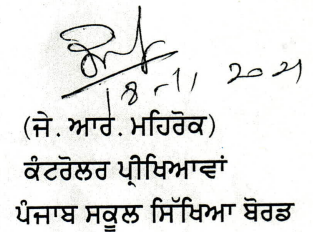 18-11 2021
(ਜੇ. ਆਰ. ਮਹਿਰੋਕ)
ਕੰਟਰੋਲਰ ਪ੍ਰੀਖਿਆਵਾਂ
ਪੰਜਾਬ ਸਕੂਲ ਸਿੱਖਿਆ ਬੋਰਡ